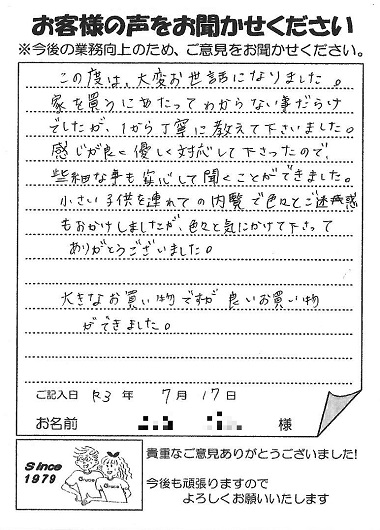 お客様の声をお聞かせください
※今後の業務向上のため、ご意見をお聞かせください。
この度は、大変お世話になりました。
家を買うにあたってわからない事だらけ
でしたが、1から丁寧に教えて下さいました。
感じが良く優しく対応して下さったので、
些細な事も安心して聞くことができました。
小さい子供を連れての内覧で色々とご迷惑
もおかけしましたが、色々と気にかけて下さって
ありがとうございました。
大きなお買い物ですが良いお買い物
ができました。
ご記入日 R3 年 7月 17日
お名前 様
Since
1979
貴重なご意見ありがとうございました!
今後も頑張りますので
よろしくお願いいたします